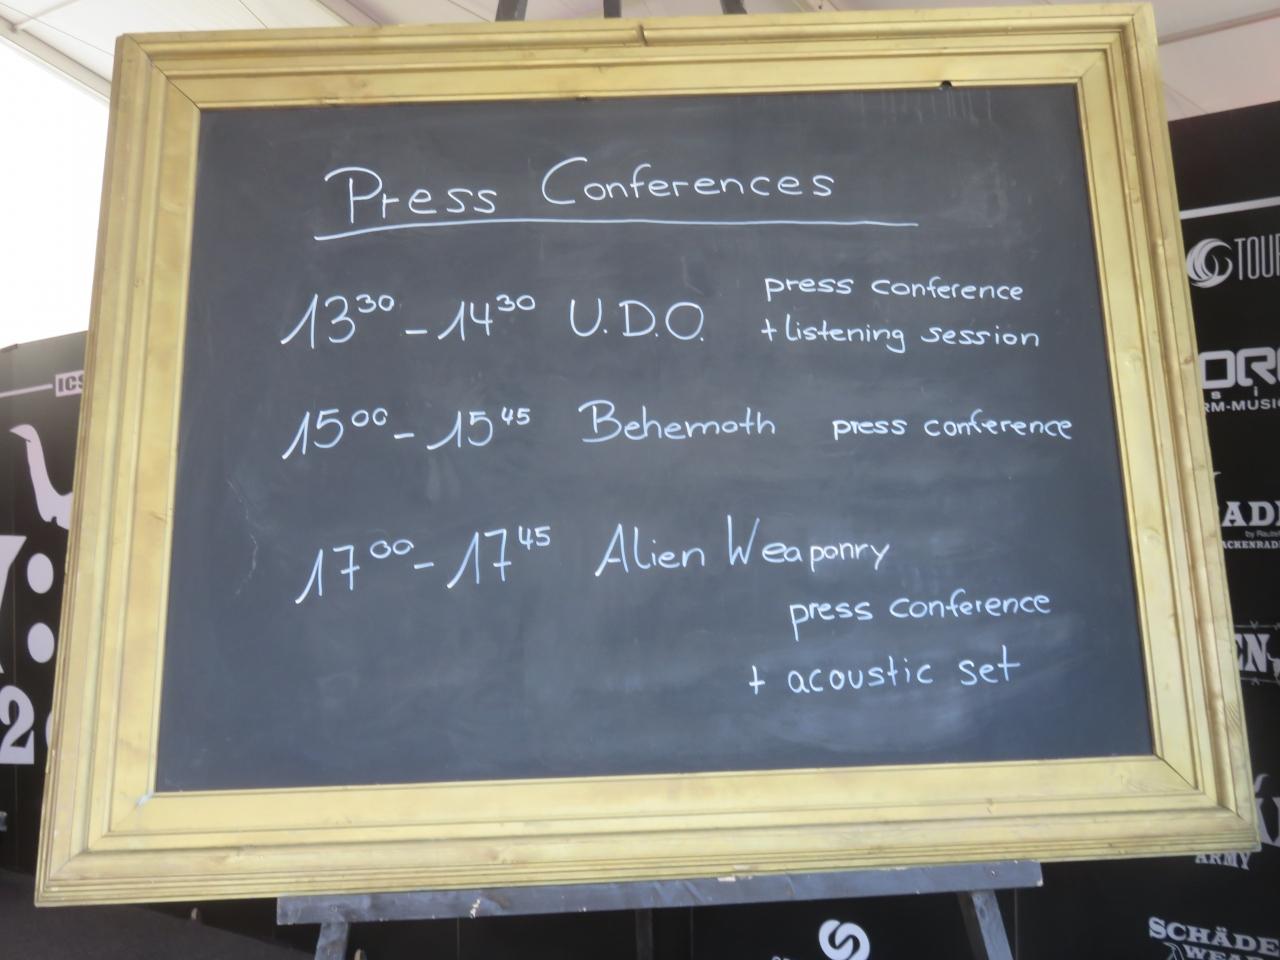 Press Conferences
13³⁰ - 14³⁰ U.D.O. press conference
+ listening session
15⁰⁰ - 15⁴⁵ Behemoth press conference
17⁰⁰ - 17⁴⁵ Alien Weaponry
press conference
+ acoustic set
ICS
TOUR
RM-MUSIC
ARMY
SCHÄDE
WEAR